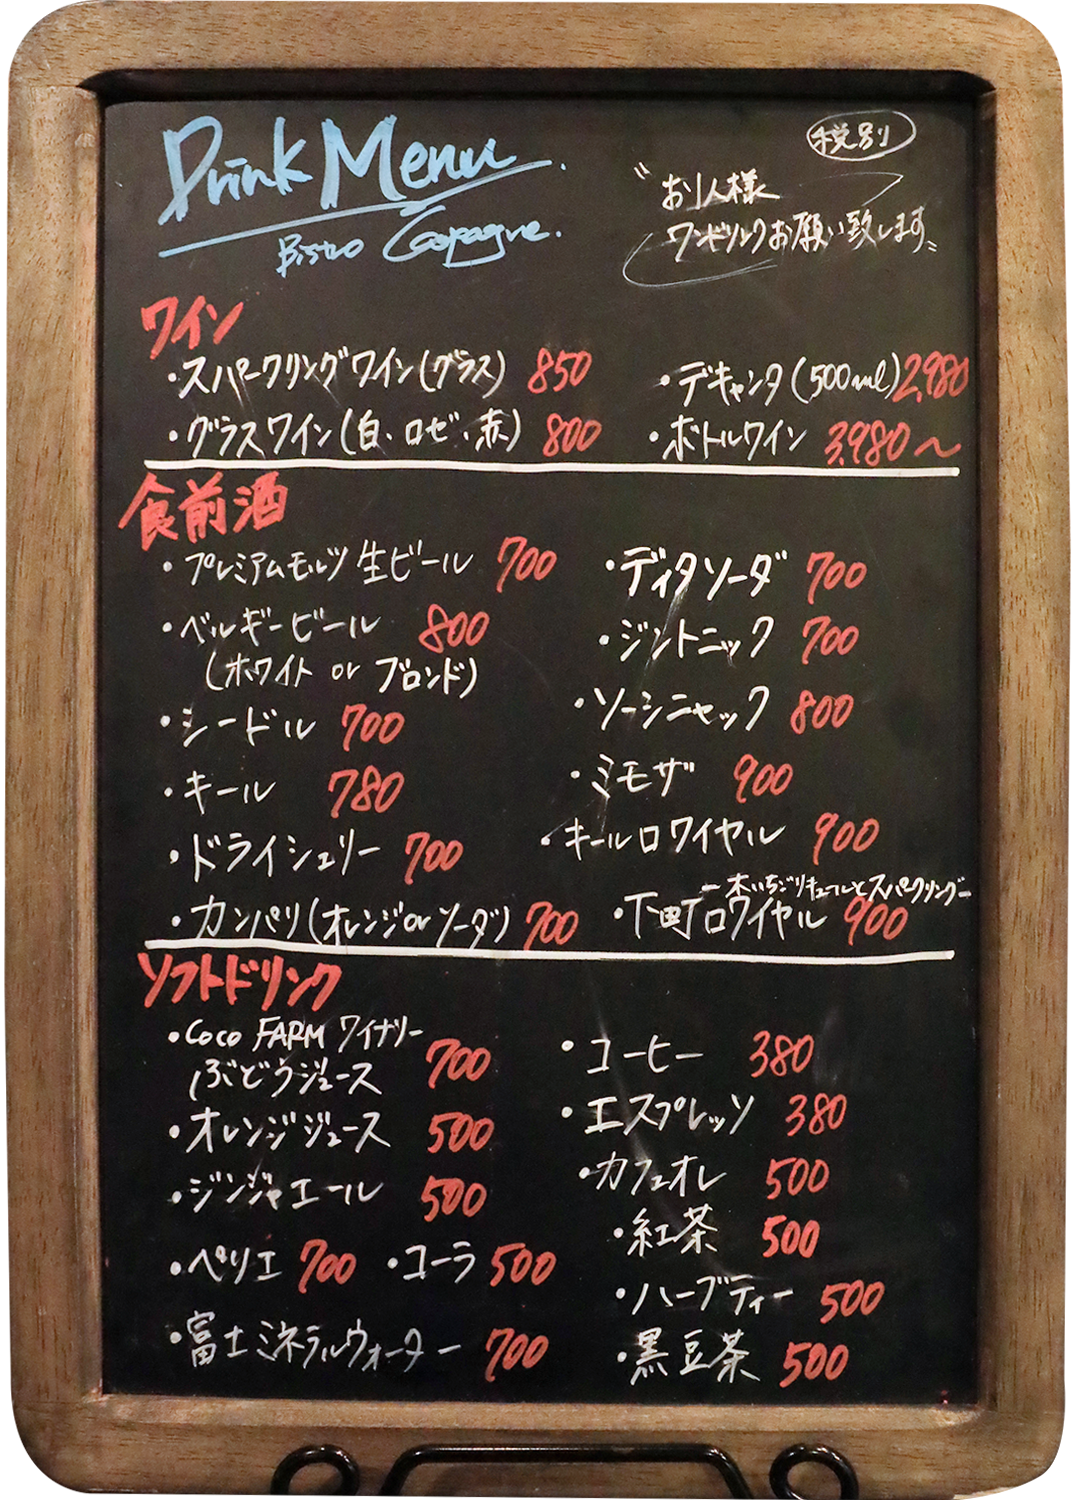 Drink Menu.
Bistro
税別
"お1人様
ワンドリンクお願い致します"
ワイン
・スパークリングワイン(グラス) 850
・グラスワイン(白、ロゼ、赤) 800
・デキャンタ(500ml) 2,980
・ボトルワイン 3,980〜
食前酒
・プレミアムモルツ 生ビール 700
・ベルギービール 800
(ホワイト or ブロンド)
・シードル 700
・キール 780
・ドライシェリー 700
・カンパリ(オレンジ or ソーダ) 700
・ディタソーダ 700
・ジントニック 700
・ソーシニャック 800
・ミモザ 900
・キールロワイヤル 900
ー木いちごリキュールとスパークリングー
・下町ロワイヤル 900
ソフトドリンク
・Coco FARM ワイナリー
ぶどうジュース 700
・オレンジジュース 500
・ジンジャエール 500
・ペリエ 700 ・コーラ 500
・富士ミネラルウォーター 700
・コーヒー 380
・エスプレッソ 380
・カフェオレ 500
・紅茶 500
・ハーブティー 500
・黒豆茶 500